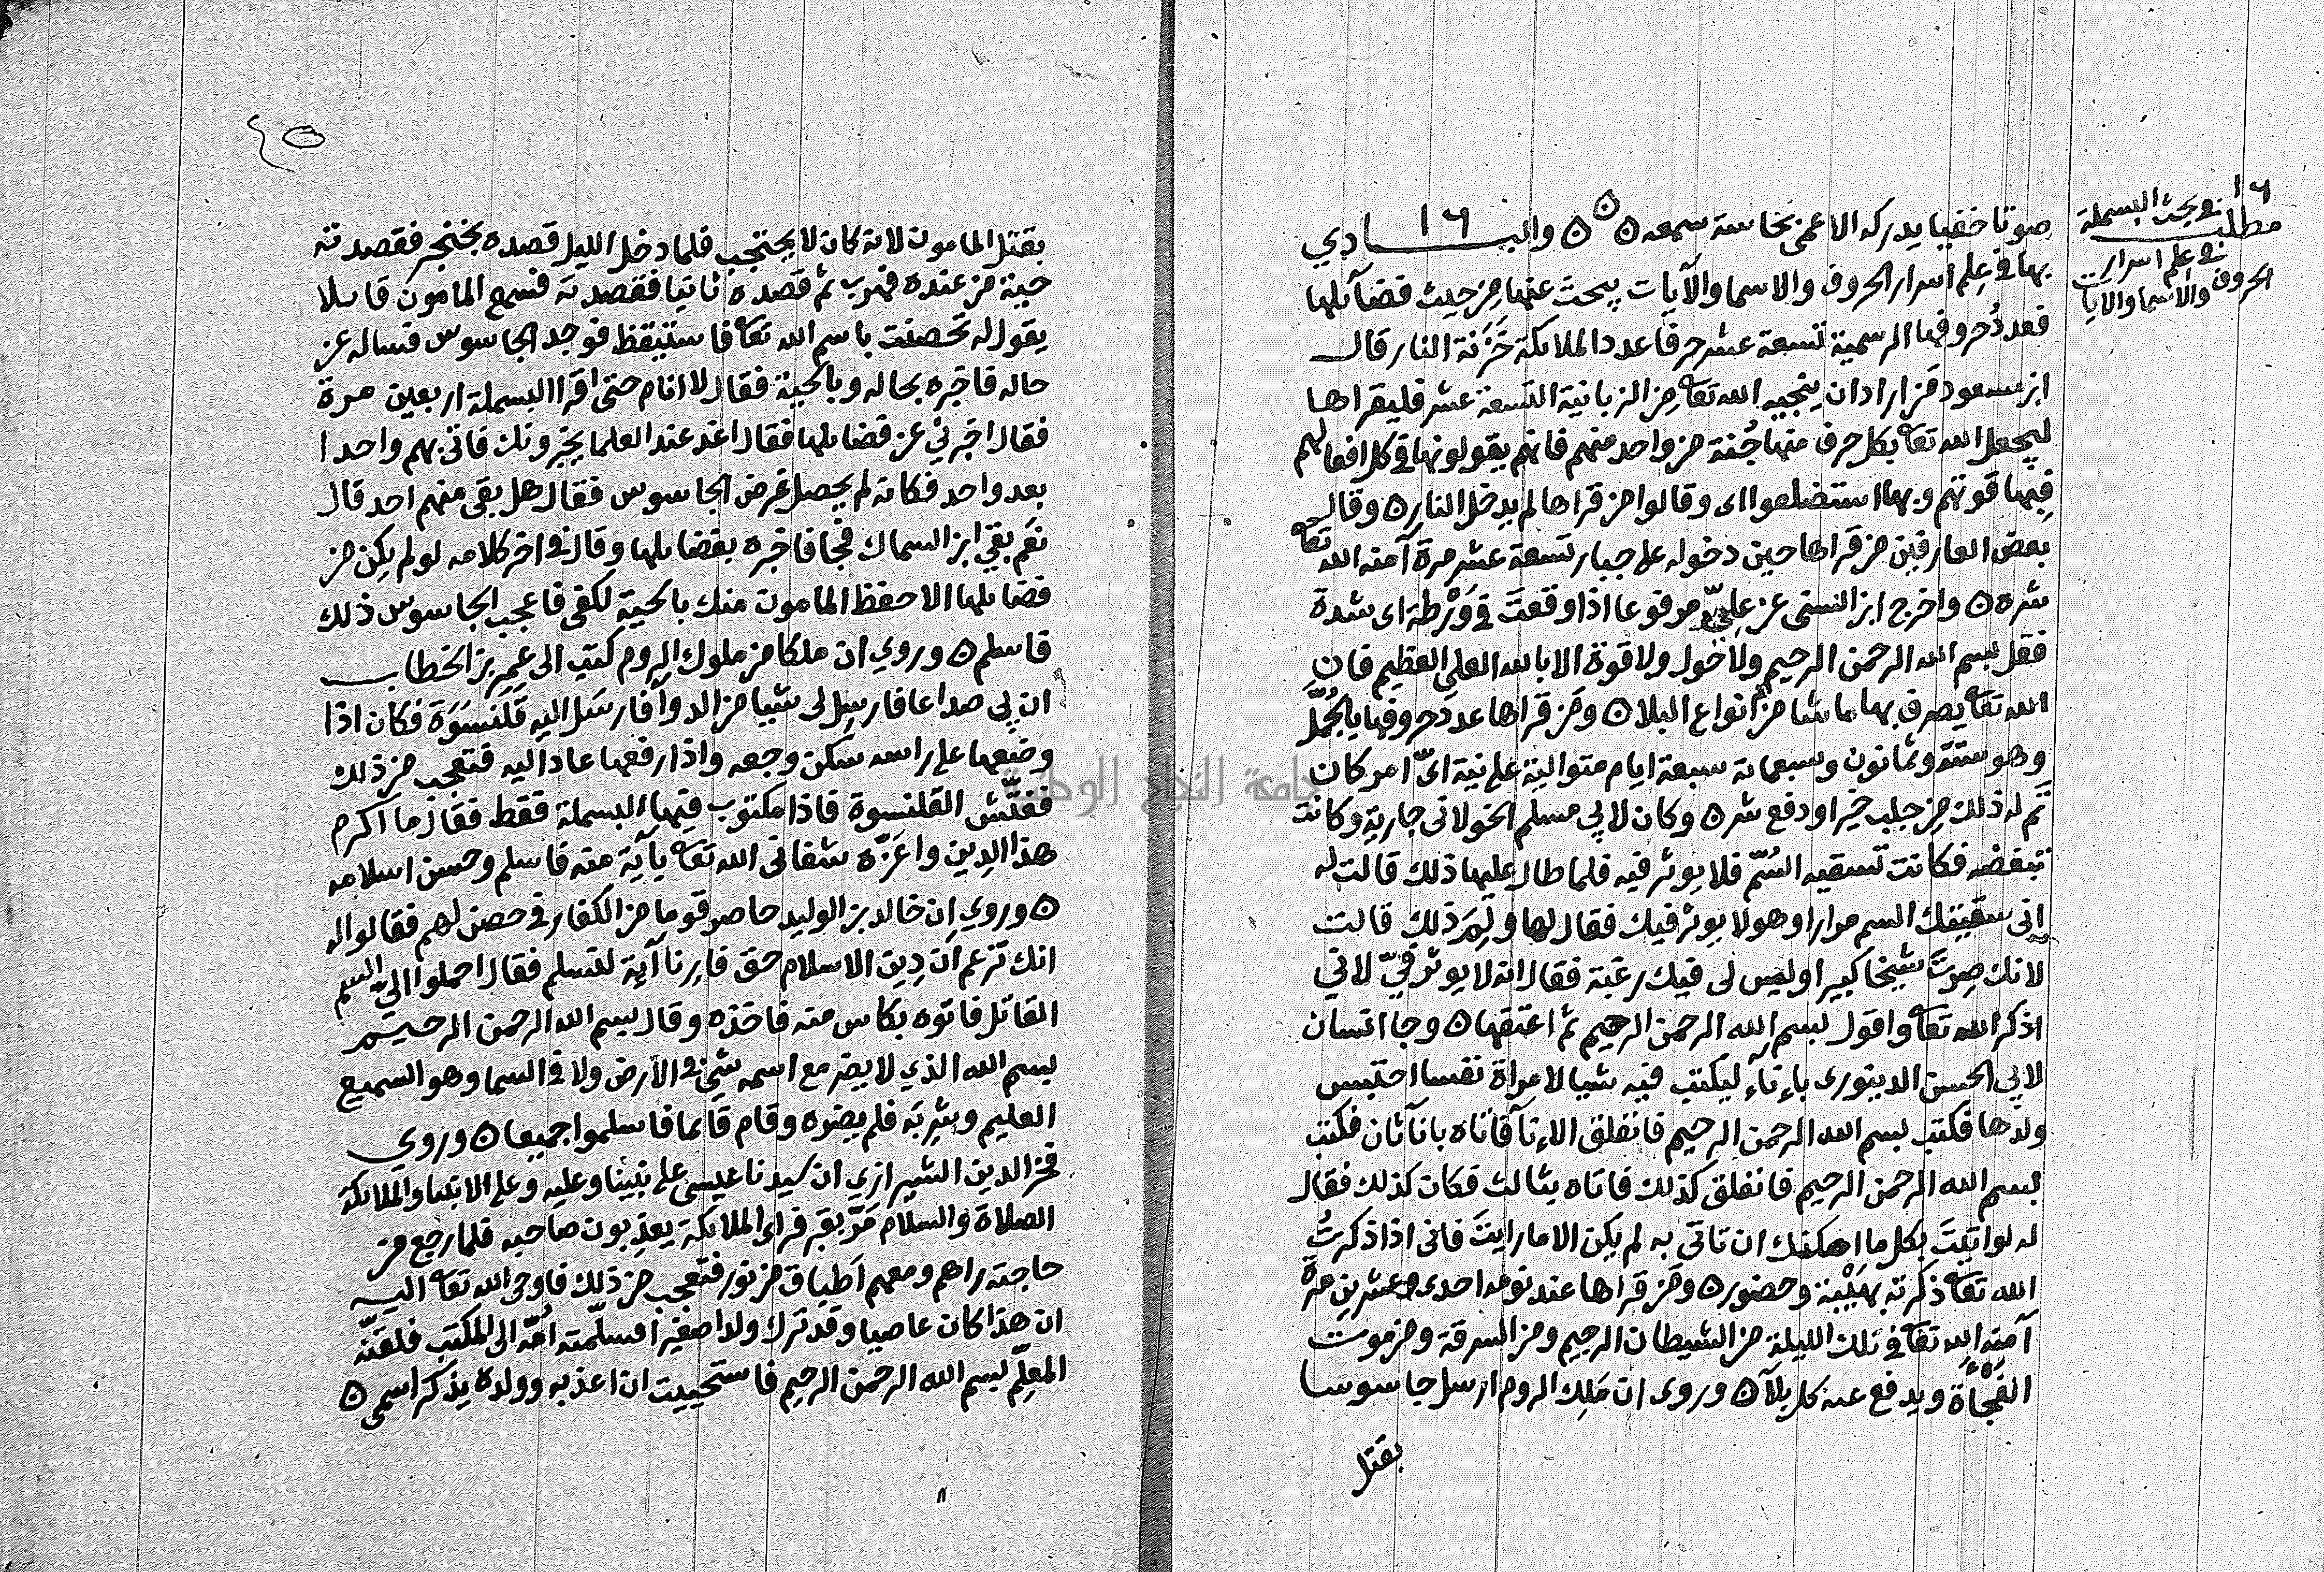 ١٦
مطلب في بحث البسملة
في علم اسرار
الحروف والاسما والايات
صوتا خفيا يدركه الاعمى بحاسة سمعه ٥ ٥ ٥ والبـــادي ١٦
بها في علم اسرار الحروف والاسما والآيات يبحث عنها من حيث فضآئلها
فعدد حروفها الرسمية تسعة عشر حرفا عدد الملائكة خزنة النار قال
ابن مسعود من اراد ان ينجيه الله تعا من الزبانية التسعة عشر فليقراها
ليجعل الله تعا بكل حرف منها جُنة من واحد منهم فانهم يقولونها في كل افعالهم
فبها قوتهم وبها استضلعوا اى وقالوا من قراها لم يدخل النار ٥ وقال
بعض العارفين من قراها حين دخوله على جبار تسعة عشر مرة آمنه الله تعا
شره ٥ واخرج ابن السنى عن علىّ مرفوعا اذا وقعتَ في وَرْطة اى شدة
فقل بسم الله الرحمن الرحيم ولا حول ولا قوة الا بالله العلى العظيم فان
الله تعا يصرف بها ما شا من انواع البلا ٥ ومن قراها عدد حروفها بالجُمَّل
وهو ستة وثمانون وسبعماية سبعة ايام متوالية على نية اىّ امر كان
تم له ذلك من جلب خير او دفع شر ٥ وكان لابي مسلم الخولانى جارية وكانت
تبغضه فكانت تسقيه السُمّ فلا يوثر فيه فلما طال عليها ذلك قالت له
انى سقيتك السم مرارا وهو لا يوثر فيك فقال لها ولِمَ ذلك قالت
لانك صرت شيخا كبيرا وليس لى فيك رغبة فقال انه لا يوثر فيّ لانى
اذكر الله تعا واقول بسم الله الرحمن الرحيم ثم اعتقها ٥ وجا انسان
لابي الحسن الدينورى بإنآء ليكتب فيه شيا لامراة نفسا احتبس
ولدها فكتب بسم الله الرحمن الرحيم فانفلق الاءنآ فاتاه بانآ ثان فكتب
بسم الله الرحمن الرحيم فانفلق كذلك فاتاه بثالث فكان كذلك فقال
له لو اتيتَ بكل ما امكنك ان تاتى به لم يكن الا ما رايتَ فانى اذا ذكرتُ
الله تعا ذكرته بهَيْبة وحضور ٥ ومن قراها عند نومه احدى وعشرين مرة
آمنه الله تعا في تلك الليلة من الشيطان الرجيم ومن السرقة ومن موت
الفُجاَة ويدفع عنه كل بلآ ٥ وروى ان مَلِك الروم ارسل جاسوسا
بقتل
٢٥
بقتل المامون لانه كان لا يحتجب فلما دخل الليل قصده بخنجر فقصدته
حية من عنده فهرب ثم قصده ثانيا فقصدته فسمع المامون قائلا
يقول له تحصنت باسم الله تعا فاستيقظ فوجد الجاسوس فساله عن
حاله فاخبره بحاله وبالحية فقال لا انام حتى اقرا البسملة اربعين مرة
فقال اخبرني عن فضائلها فقال اغد عند العلما يخبرونك فاتى بهم واحدا
بعد واحد فكانه لم يحصل غرض الجاسوس فقال هل بقى منهم احد قال
نعم بقي ابن السماك فجا فاخبره بفضائلها وقال في اخر كلامه لو لم يكن من
فضائلها الا حفظ المامون منك بالحية لكفى فاعجب الجاسوس ذلك
فاسلم ٥ وروي ان ملكا من ملوك الروم كتب الى عمر بن الخطاب
ان بي صداعا فارسل لى شيا من الدوآ فارسَل اليه قَلَنسَوَة فكان اذا
وضعها على راسه سكن وجعه واذا رفعها عاد اليه فتعجب من ذلك
ففتّش القلنسوة فاذا مكتوب فيها البسملة فقط فقال ما اكرم
هذا الدين واعَزّه شفانى الله تعا بآية منه فاسلم وحسن اسلامه
٥ وروي ان خالد بن الوليد حاصر قوما من الكفار في حصن لهم فقالوا له
انك تزعم ان دِين الاسلام حق فارنا آية لنسلم فقال احملوا اليّ السم
القاتل فاتوه بكاس منه فاخذه وقال بسم الله الرحمن الرحيـم
بسم الله الذي لا يضر مع اسمه شي في الارض ولا في السما وهو السميع
العليم وشربَه فلم يضره وقام قآئما فاسلموا جميعا ٥ وروي
فخر الدين الشيرازي ان سيدنا عيسى على نبينا وعليه وعلى الانبيا والملائكة
الصلاة والسلام مَرَّ بقبر فراى الملائكة يعذبون صاحبه فلما رجع من
حاجته راهم ومعهم اَطباق من نور فتعجب من ذلك فاوحى الله تعا اليـه
ان هذا كان عاصيا وقد ترك ولدا صغيرا فسلّمته امّه الى المكتب فلقنّه
المعلّم بسم الله الرحمن الرحيم فاستحييت ان اعذبه وولده يذكر اسمى ٥
جامعة النجاح الوطنية